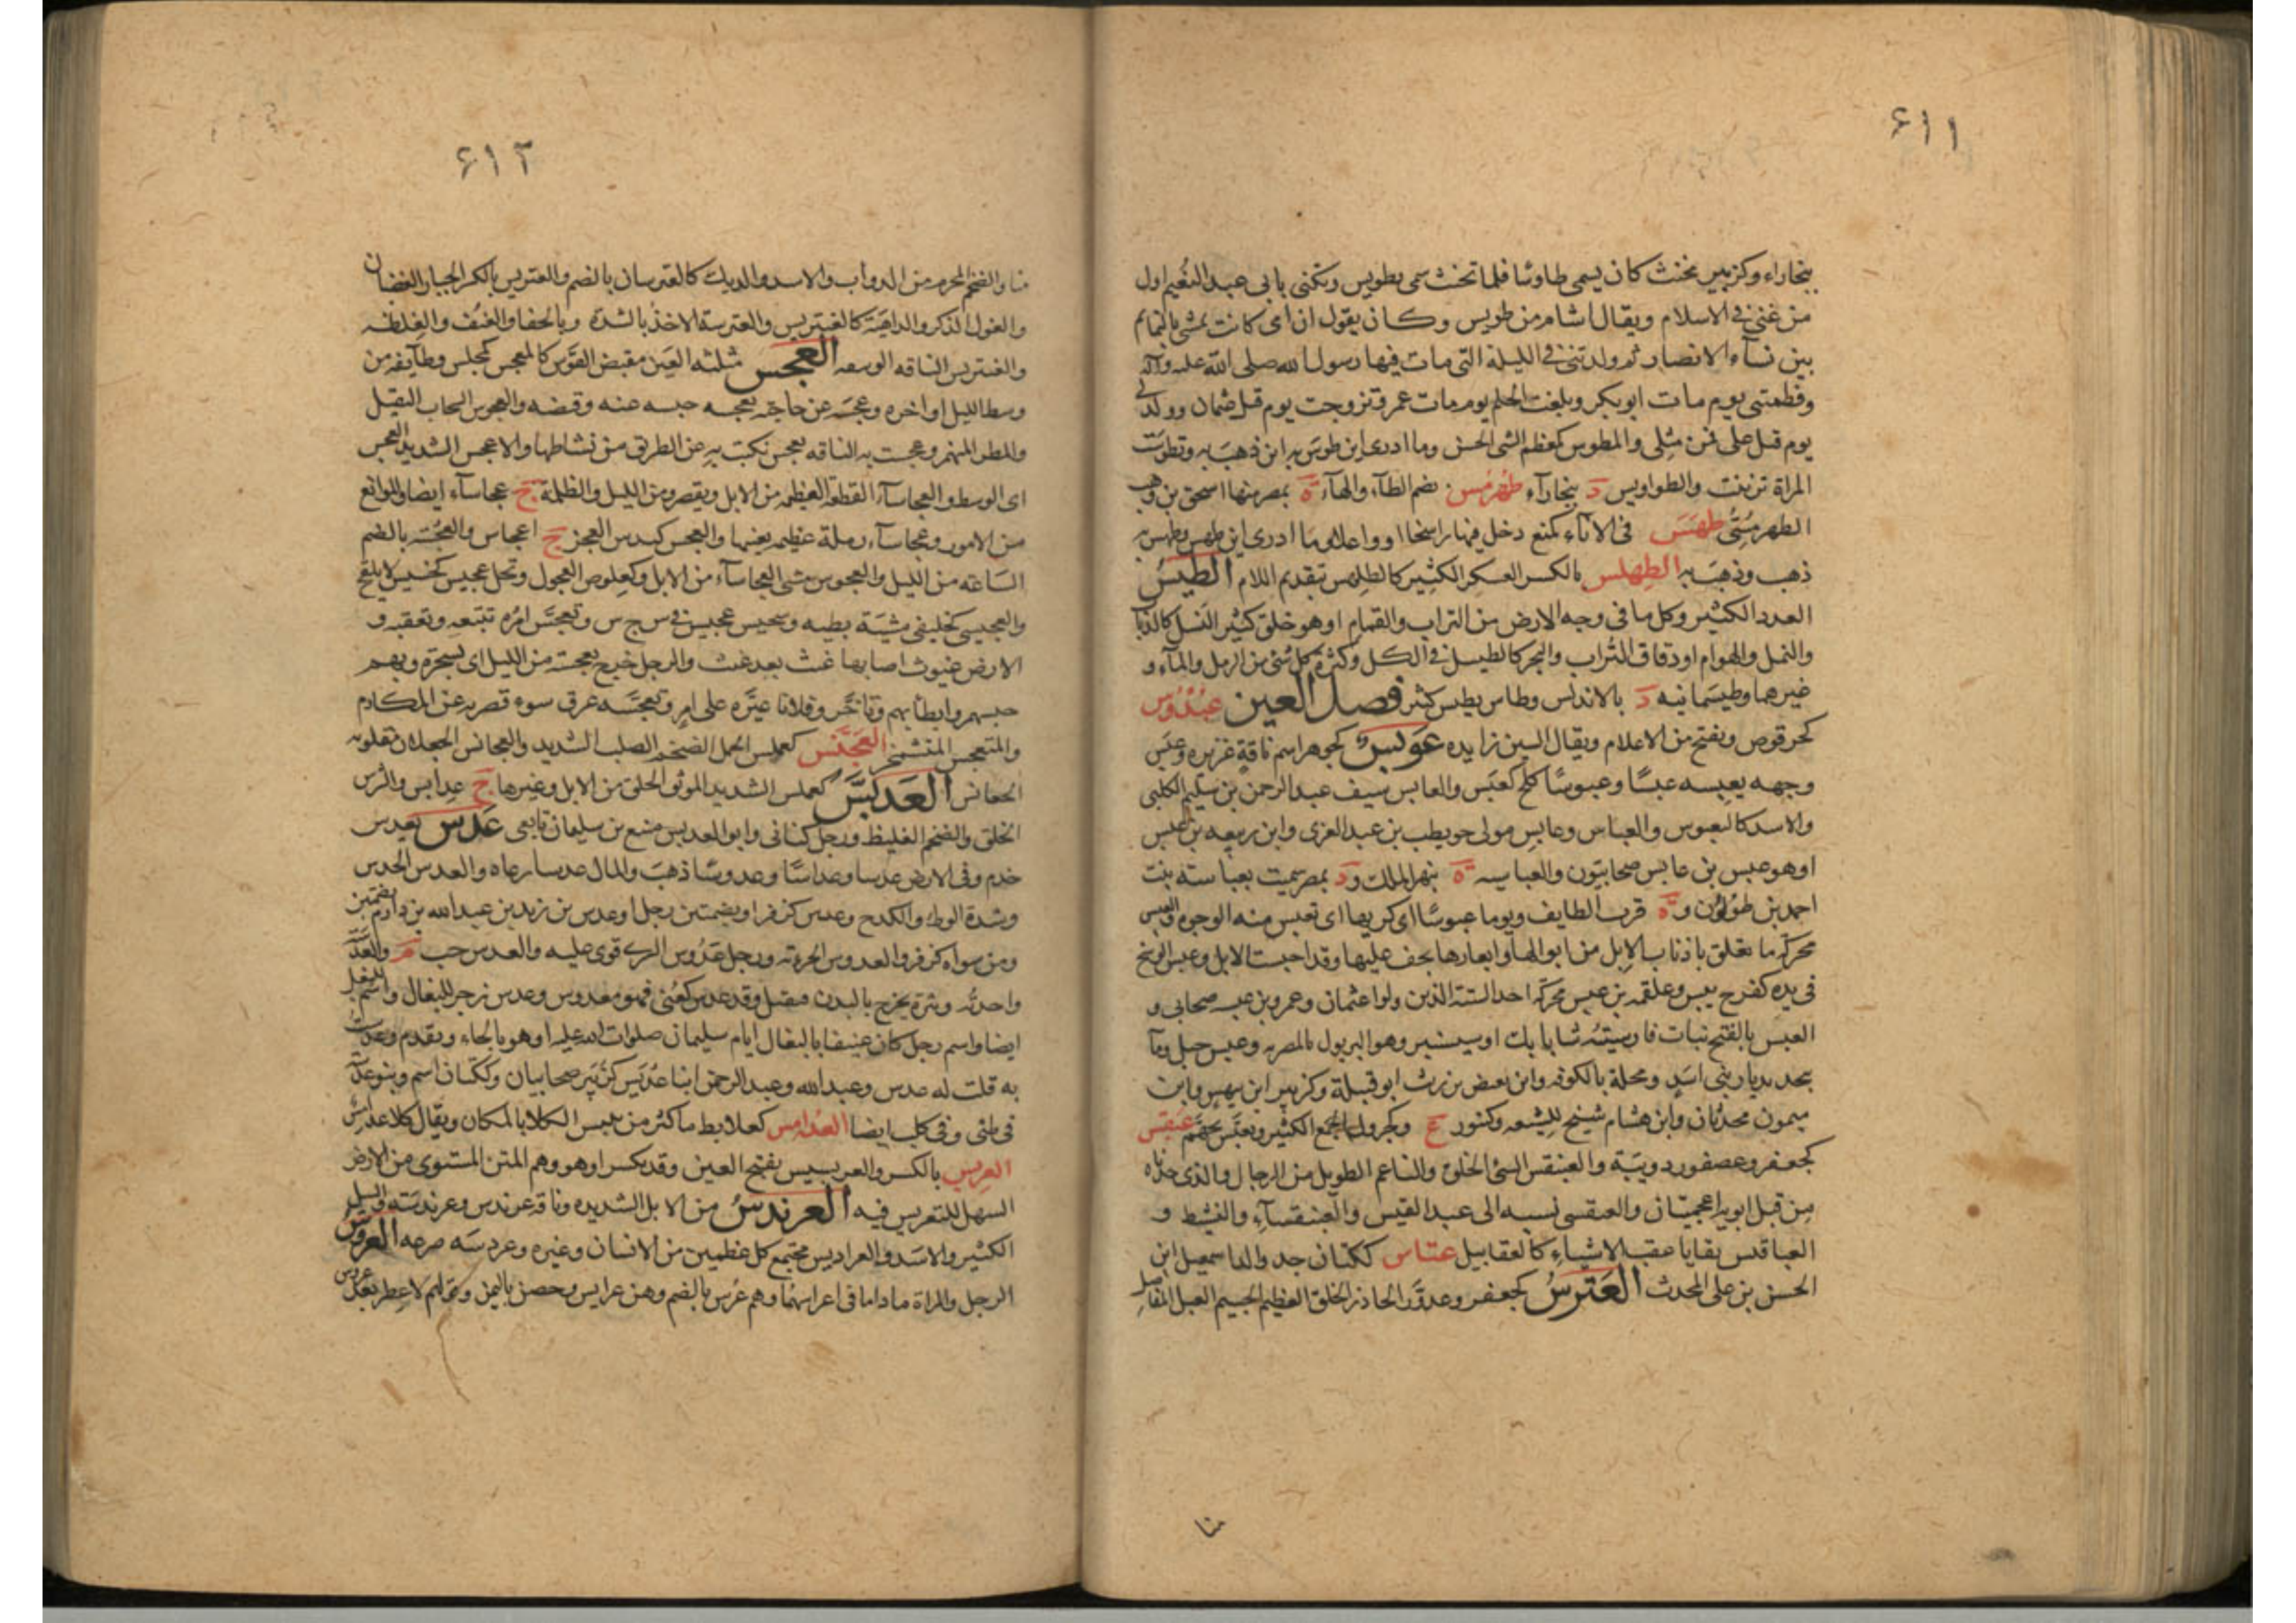 ۶۱۱
بنجاراء وكزبير مخنث كان يسمى طاوسا فلما تخنث سمى بطويس وتكنى بابى عبد النعيم اول
من غنى فى الاسلام ويقال اشام من طويس وكان يقول ان امى كانت تمشى بالنمائم
بين نسآء الانصار ثم ولدتنى فى الليلة التى مات فيها رسول الله صلى الله عليه وآله
وفطمتنى يوم مات ابوبكر وبلغت الحلم يوم مات عمر وتزوجت يوم قتل عثمان وولد لى
يوم قتل على فمن مثلى والمطوس كمعظم الشى الحسن وما ادرى اين طوس به اين ذهب به وتطوست
المراة تزينت والطواويس د بنجارآء طهرمس بضم الطآء والهآء ة بمصر منها اسحق بن وهب
الطهرمستى طهس فى الارض كمنع دخل فيها راسخا او واغلا وما ادرى اين طهس وطهس به
ذهب وذهب به الطهلس بالكسر العسكر الكثير كالطلهس بتقديم اللام الطيس
العدد الكثير وكل ما فى وجه الارض من التراب والقمام او هو خلق كثير النسل كالذباب
والنمل والهوام او دقاق التراب والبحر كالطيسل فى الكل وكثرة كل شئ من الرمل والمآء و
غيرهما وطيسمانيه د بالاندلس وطاس يطيس كثر فصل العين عبدوس
كحرقوص ويفتح من الاعلام ويقال السين زايده عوبس كجوهر اسم ناقة غزيره وعبس
وجهه يعبسه عبسا وعبوسا كلح كعبس والعابس سيف عبد الرحمن بن سليم الكلبى
والاسد كالعبوس والعباس وعابس مولى حويطب بن عبد العزى وابن ربيعه بن عبس
او هو عبس بن عابس صحابيون والعباسيه ة بنهر الملك و د بمصر سميت بعباسته بنت
احمد بن طولون و ة قرب الطايف ويوما عبوسا اى كريها اى تعبس منه الوجوه والعبس
محركة ما تعلق باذناب الابل من ابوالها وابعارها يجف عليها وقد اعبست الابل وعبس الوسخ
فى يده كفرح يبس وعلقمه بن عبس محركة احد الستة الذين ولوا عثمان وعمرو بن عبسه صحابى و
العبس بالفتح نبات فارسيته شابابك او سيسنبر وهو البربول بالمصريه وعبس جبل وماء
بنجد بديار بنى اسد ومحلة بالكوفه وابن بغيض بن ريث ابو قبيلة وكزبير ابن بيهس وابن
ميمون محدثان وابن هشام شيخ للشيعه وكتنور ج وكجرول الجمع الكثير وتعبس تجهم عبقس
كجعفر وعصفور دويبة والعبنقس السئ الخلق والناعم الطويل من الرجال والذى جدتاه
من قبل ابويه اعجميتان والعبقسى نسبه الى عبد القيس والعبنقسآء والنشيط و
العباقس بقايا عقب الاشياء كالعقابيل عتاس ككتان جد والد اسمعيل ابن
الحسن بن على المحدث العترس كجعفر وعدور الحاذر الخلق العظيم الجسيم العبل المفاصل
منا
۶۱۲
منا والضخم المحرم من الدوآب والاسد والديك كالعترسان بالضم والعتريس بالكسر الجبار الغضبان
والغول الذكر والداهية كالعنتريس والعترسة الاخذ بالشدة وبالجفا والعنف والغلظه
والعنتريس الناقه الوسعه العجس مثلثه العين مقبض القوس كالمعجس كمجلس وطآيفه من
وسط الليل او اخره وعجسه عن حاجته يعجسه حبسه عنه وقبضه والعجوس السحاب الثقيل
والمطر المنهمر وعجست به الناقه تعجس نكبت به عن الطريق من نشاطها والاعجس الشديد العجس
اى الوسط والعجاسآء القطعة العظيمه من الابل ويقصر ومن الليل والظلمة ج عجاسآء ايضا والموانع
من الامور وعجاسآء رملة عظيمه بعينها والعجس كندس العجز ج اعجاس والعجسه بالضم
الساعه من الليل والعجوس مشى العجاسآء من الابل وكعلوص العجول وفحل عجيس كخسيس لا يلقح
والعجيسى كخليفى مشية بطيه وسجيس عجيس فى س ج س وتعجس امره تتبعه وتعقبه و
الارض غيوث اصابها غيث بعد غيث والرجل خرج بعجسة من الليل اى بسحرة وبهم
حبسهم وابطأ بهم وتاخر وفلانا عيره على امر وتعجسه عرق سوء قصر به عن المكارم
والمتعجس المتشمخر العجنس كعملس الجمل الضخم الصلب الشديد والعجانس الجعلان مقلوبه
الجعانس العدبس كعملس الشديد الموثق الخلق من الابل وغيرها ج عدابس والشرس
الخلق والضخم الغليظ ورجل كنانى وابو العدبس منيع بن سليمان تابعى عدس يعدس
خدم وفى الارض عدسا وعداسا وعدوسا ذهب والمال عدسا رعاه والعدس الحدس
وشدة الوطء والكدح وعدس كزفر او بضمتين رجل او عدس بن زيد بن عبد الله بن دارم بضمتين
ومن سواه كزفر والعدوس الجرئة ورجل عدوس السرى قوى عليه والعدس حب م والعدسة
واحدته وبثرة يخرج بالبدن فيقتل وقد عدس كعنى فهو معدوس وعدس زجر للبغال واسم للبغل
ايضا واسم رجل كان عنيفا بالبغال ايام سليمان صلوات الله عليه او هو بالحاء وتقدم وعدست
به قلت له عدس وعبدالله وعبد الرحمن ابنا عديس كزبير صحابيان وككتان اسم وبنو عدسة
فى طئى وفى كلب ايضا العدامس كعلابط ما كثر من يبيس الكلا بالمكان ويقال كلا عدامس
العربس بالكسر والعربسيس بفتح العين وقد يكسر او هو وهم المتن المستوى من الارض
السهل للتعريس فيه العرندس من الابل الشديده وناقة عرندس وعرندسة والسيل
الكثير والاسد والعراديس مجتمع كل عظمين من الانسان وغيره وعردسه صرعه العروس
الرجل والمراة ما داما فى اعراسهما وهم عرس بالضم وهن عرايس وحصن باليمن وقولهم لا عطر بعد عروس